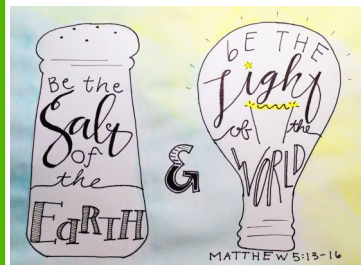 Be the
Salt
of
the
EARTH
&
bE THE
Light
of the
WORLD
MATTHEW 5:13-16